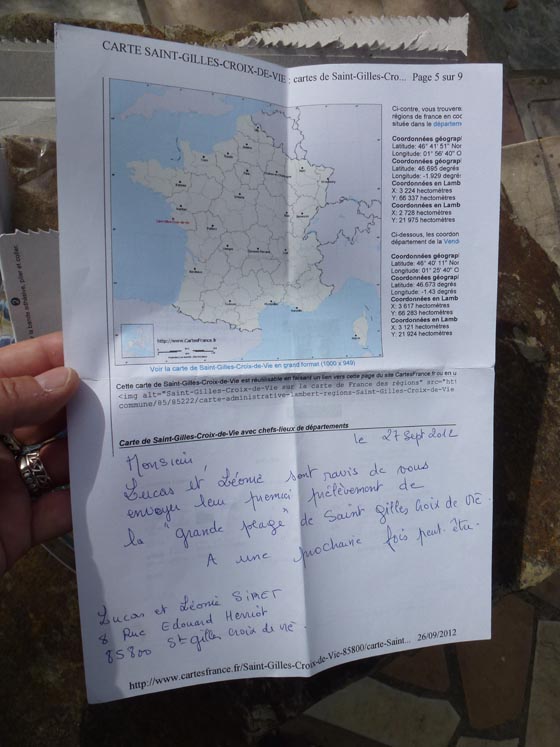 CARTE SAINT-GILLES-CROIX-DE-VIE : cartes de Saint-Gilles-Cro... Page 5 sur 9
Ci-contre, vous trouvere
régions de france en coo
située dans le départem
Coordonnées géograp
Latitude: 46° 41' 51" Nor
Longitude: 01° 56' 40" O
Coordonnées géograp
Latitude: 46.695 degrés
Longitude: -1.929 degrés
Coordonnées en Lamb
X: 3 224 hectomètres
Y: 66 337 hectomètres
Coordonnées en Lamb
X: 2 728 hectomètres
Y: 21 975 hectomètres
Ci-dessous, les coordon
département de la Vend
Coordonnées géograp
Latitude: 46° 40' 11" No
Longitude: 01° 25' 40" O
Coordonnées géograp
Latitude: 46.673 degrés
Longitude: -1.43 degrés
Coordonnées en Lamb
X: 3 617 hectomètres
Y: 66 283 hectomètres
Coordonnées en Lamb
X: 3 121 hectomètres
Y: 21 924 hectomètres
http://www.CartesFrance.fr
Voir la carte de Saint-Gilles-Croix-de-Vie en grand format (1000 x 949)
Cette carte de Saint-Gilles-Croix-de-Vie est réutilisable en faisant un lien vers cette page du site CartesFrance.fr ou en u
<img alt="Saint-Gilles-Croix-de-Vie sur la carte de France des régions" src="htt
commune/85/85222/carte-administrative-lambert-regions-Saint-Gilles-Croix-de-Vie
Carte de Saint-Gilles-Croix-de-Vie avec chefs-lieux de départements
le 27 Sept 2012
Monsieur,
Lucas et Léonie sont ravis de vous
envoyer leur premier prélèvement de
la "grande plage" de Saint Gilles Croix de Vie.
A une prochaine fois peut-être.
Lucas et Léonie
8 Rue Edouard Herriot
85800 St gilles Croix de Vie
http://www.cartesfrance.fr/Saint-Gilles-Croix-de-Vie-85800/carte-Saint... 26/09/2012
la bande adhésive, plier et coller.